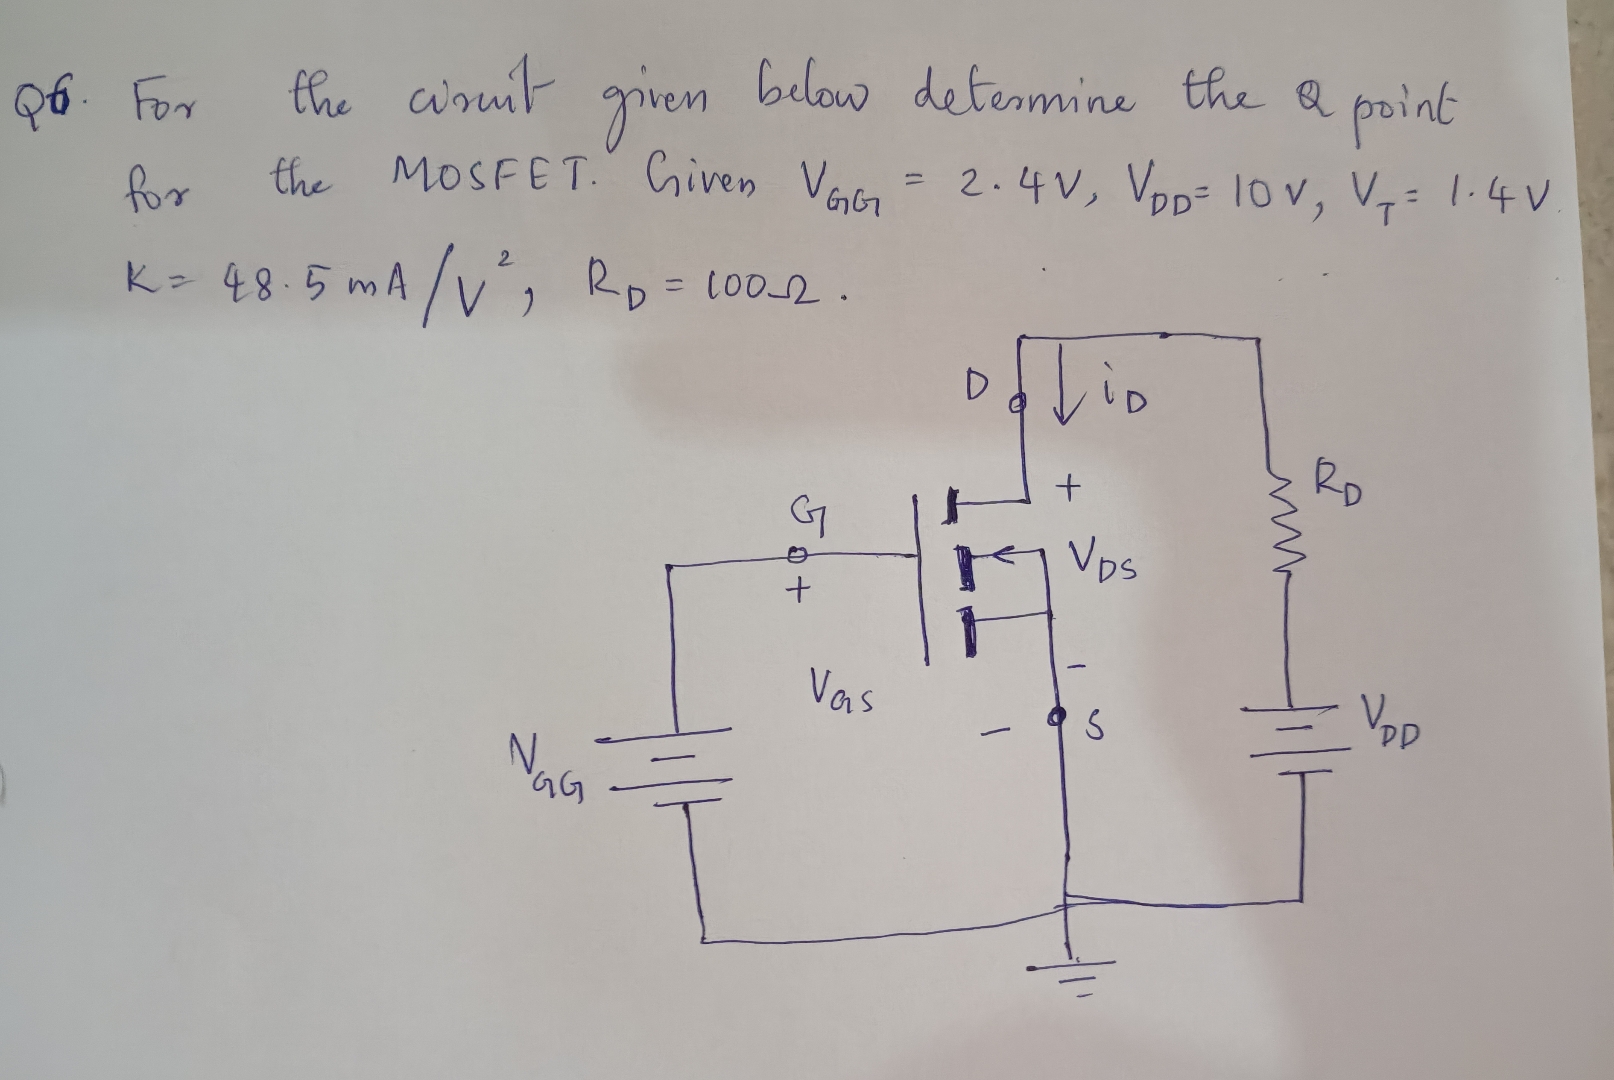 Q6. For the circuit given below determine the Q point
for the MOSFET. Given VGG = 2.4V, VDD= 10V, VT= 1.4V.
K= 48.5 mA/V², RD = 100Ω.
D iD
+ RD
G
+ VDS
VGS
-
- S VDD
VGG